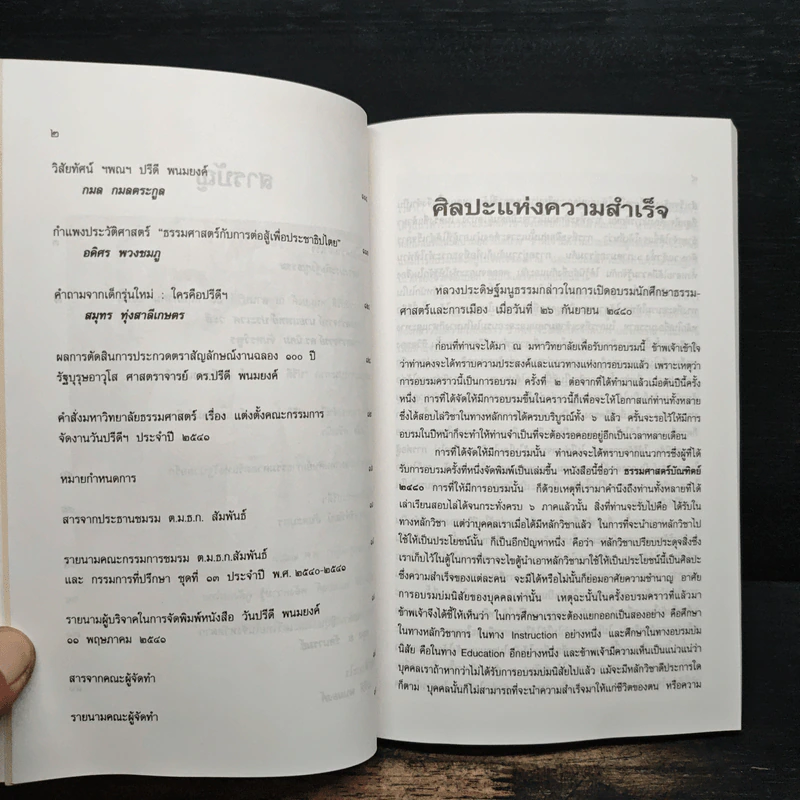 ๒
วิสัยทัศน์ ฯพณฯ ปรีดี พนมยงค์
กมล กมลตระกูล
กำแพงประวัติศาสตร์ "ธรรมศาสตร์กับการต่อสู้เพื่อประชาธิปไตย"
อดิศร พวงชมภู
คำถามจากเด็กรุ่นใหม่ : ใครคือปรีดีฯ
สมุทร ทุ่งสาลีเกษตร
ผลการตัดสินการประกวดตราสัญลักษณ์งานฉลอง ๑๐๐ ปี
รัฐบุรุษอาวุโส ศาสตราจารย์ ดร.ปรีดี พนมยงค์
คำสั่งมหาวิทยาลัยธรรมศาสตร์ เรื่อง แต่งตั้งคณะกรรมการ
จัดงานวันปรีดีฯ ประจำปี ๒๕๔๐
หมายกำหนดการ
สารจากประธานชมรม ต.ม.ธ.ก. สัมพันธ์
รายนามคณะกรรมการชมรม ต.ม.ธ.ก.สัมพันธ์
และ กรรมการที่ปรึกษา ชุดที่ ๑๓ ประจำปี พ.ศ.๒๕๔๐-๒๕๔๑
รายนามผู้บริจาคในการจัดพิมพ์หนังสือ วันปรีดี พนมยงค์
๑๑ พฤษภาคม ๒๕๔๐
สารจากคณะผู้จัดทำ
รายนามคณะผู้จัดทำ
ศิลปะแห่งความสำเร็จ
หลวงประดิษฐ์มนูธรรมกล่าวในการเปิดอบรมนักศึกษาธรรม-
ศาสตร์และการเมือง เมื่อวันที่ ๒๖ กันยายน ๒๔๘๐
ก่อนที่ท่านจะได้มา ณ มหาวิทยาลัยเพื่อรับการอบรมนี้ ข้าพเจ้าเข้าใจ
ว่าท่านคงจะได้ทราบความประสงค์และแนวทางแห่งการอบรมแล้ว เพราะเหตุว่า
การอบรมคราวนี้เป็นการอบรม ครั้งที่ ๒ ต่อจากที่ได้ทำมาแล้วเมื่อต้นปีนี้ครั้ง
หนึ่ง การที่ได้จัดให้มีการอบรมขึ้นในคราวนี้ก็เพื่อจะให้โอกาสแก่ท่านทั้งหลาย
ซึ่งได้สอบไล่วิชาในทางหลักการได้ครบบริบูรณ์ทั้ง ๖ แล้ว ครั้นจะรอไว้ให้มีการ
อบรมในปีหน้าก็จะทำให้ท่านจำเป็นที่จะต้องรอคอยอยู่อีกเป็นเวลาหลายเดือน
การที่ได้จัดให้มีการอบรมนั้น ท่านคงจะได้ทราบจากแนวการซึ่งผู้ที่ได้
รับการอบรมครั้งที่หนึ่งจัดพิมพ์เป็นเล่มขึ้น หนังสือนี้ชื่อว่า ธรรมศาสตร์บัณฑิตย์
๒๔๘๐ การที่ให้มีการอบรมนั้น ก็ด้วยเหตุที่เรามาคำนึงถึงท่านทั้งหลายที่ได้
เล่าเรียนสอบไล่ได้จนกระทั่งครบ ๖ ภาคแล้วนั้น สิ่งที่ท่านจะรับไปคือ ได้รับใน
ทางหลักวิชา แต่ว่าบุคคลเราเมื่อได้มีหลักวิชาแล้ว ในการที่จะนำเอาหลักวิชาไป
ใช้ให้เป็นประโยชน์นั้น ก็เป็นอีกปัญหาหนึ่ง คือว่า หลักวิชาเปรียบประดุจสิ่งซึ่ง
เราเก็บไว้ในตู้ในการที่เราจะไขตู้นำเอาหลักวิชามาใช้ให้เป็นประโยชน์นี้เป็นศิลปะ
ซึ่งความสำเร็จของแต่ละคน จะมีได้หรือไม่นั้นก็ย่อมอาศัยความชำนาญ อาศัย
การอบรมบ่มนิสัยของบุคคลเท่านั้น เหตุฉะนั้นในครั้งอบรมคราวที่แล้วมา
ข้าพเจ้าจึงได้ชี้ให้เห็นว่า ในการศึกษาเราจะต้องแยกออกเป็นสองอย่าง คือศึกษา
ในทางหลักวิชาการ ในทาง Instruction อย่างหนึ่ง และศึกษาในทางอบรมบ่ม
นิสัย คือในทาง Education อีกอย่างหนึ่ง และข้าพเจ้ามีความเห็นเป็นแน่วแน่ว่า
บุคคลเราถ้าหากว่าไม่ได้รับการอบรมบ่มนิสัยไปแล้ว แม้จะมีหลักวิชาดีประการใด
ก็ตาม บุคคลนั้นก็ไม่สามารถที่จะนำความสำเร็จมาให้แก่ชีวิตของตน หรือความ